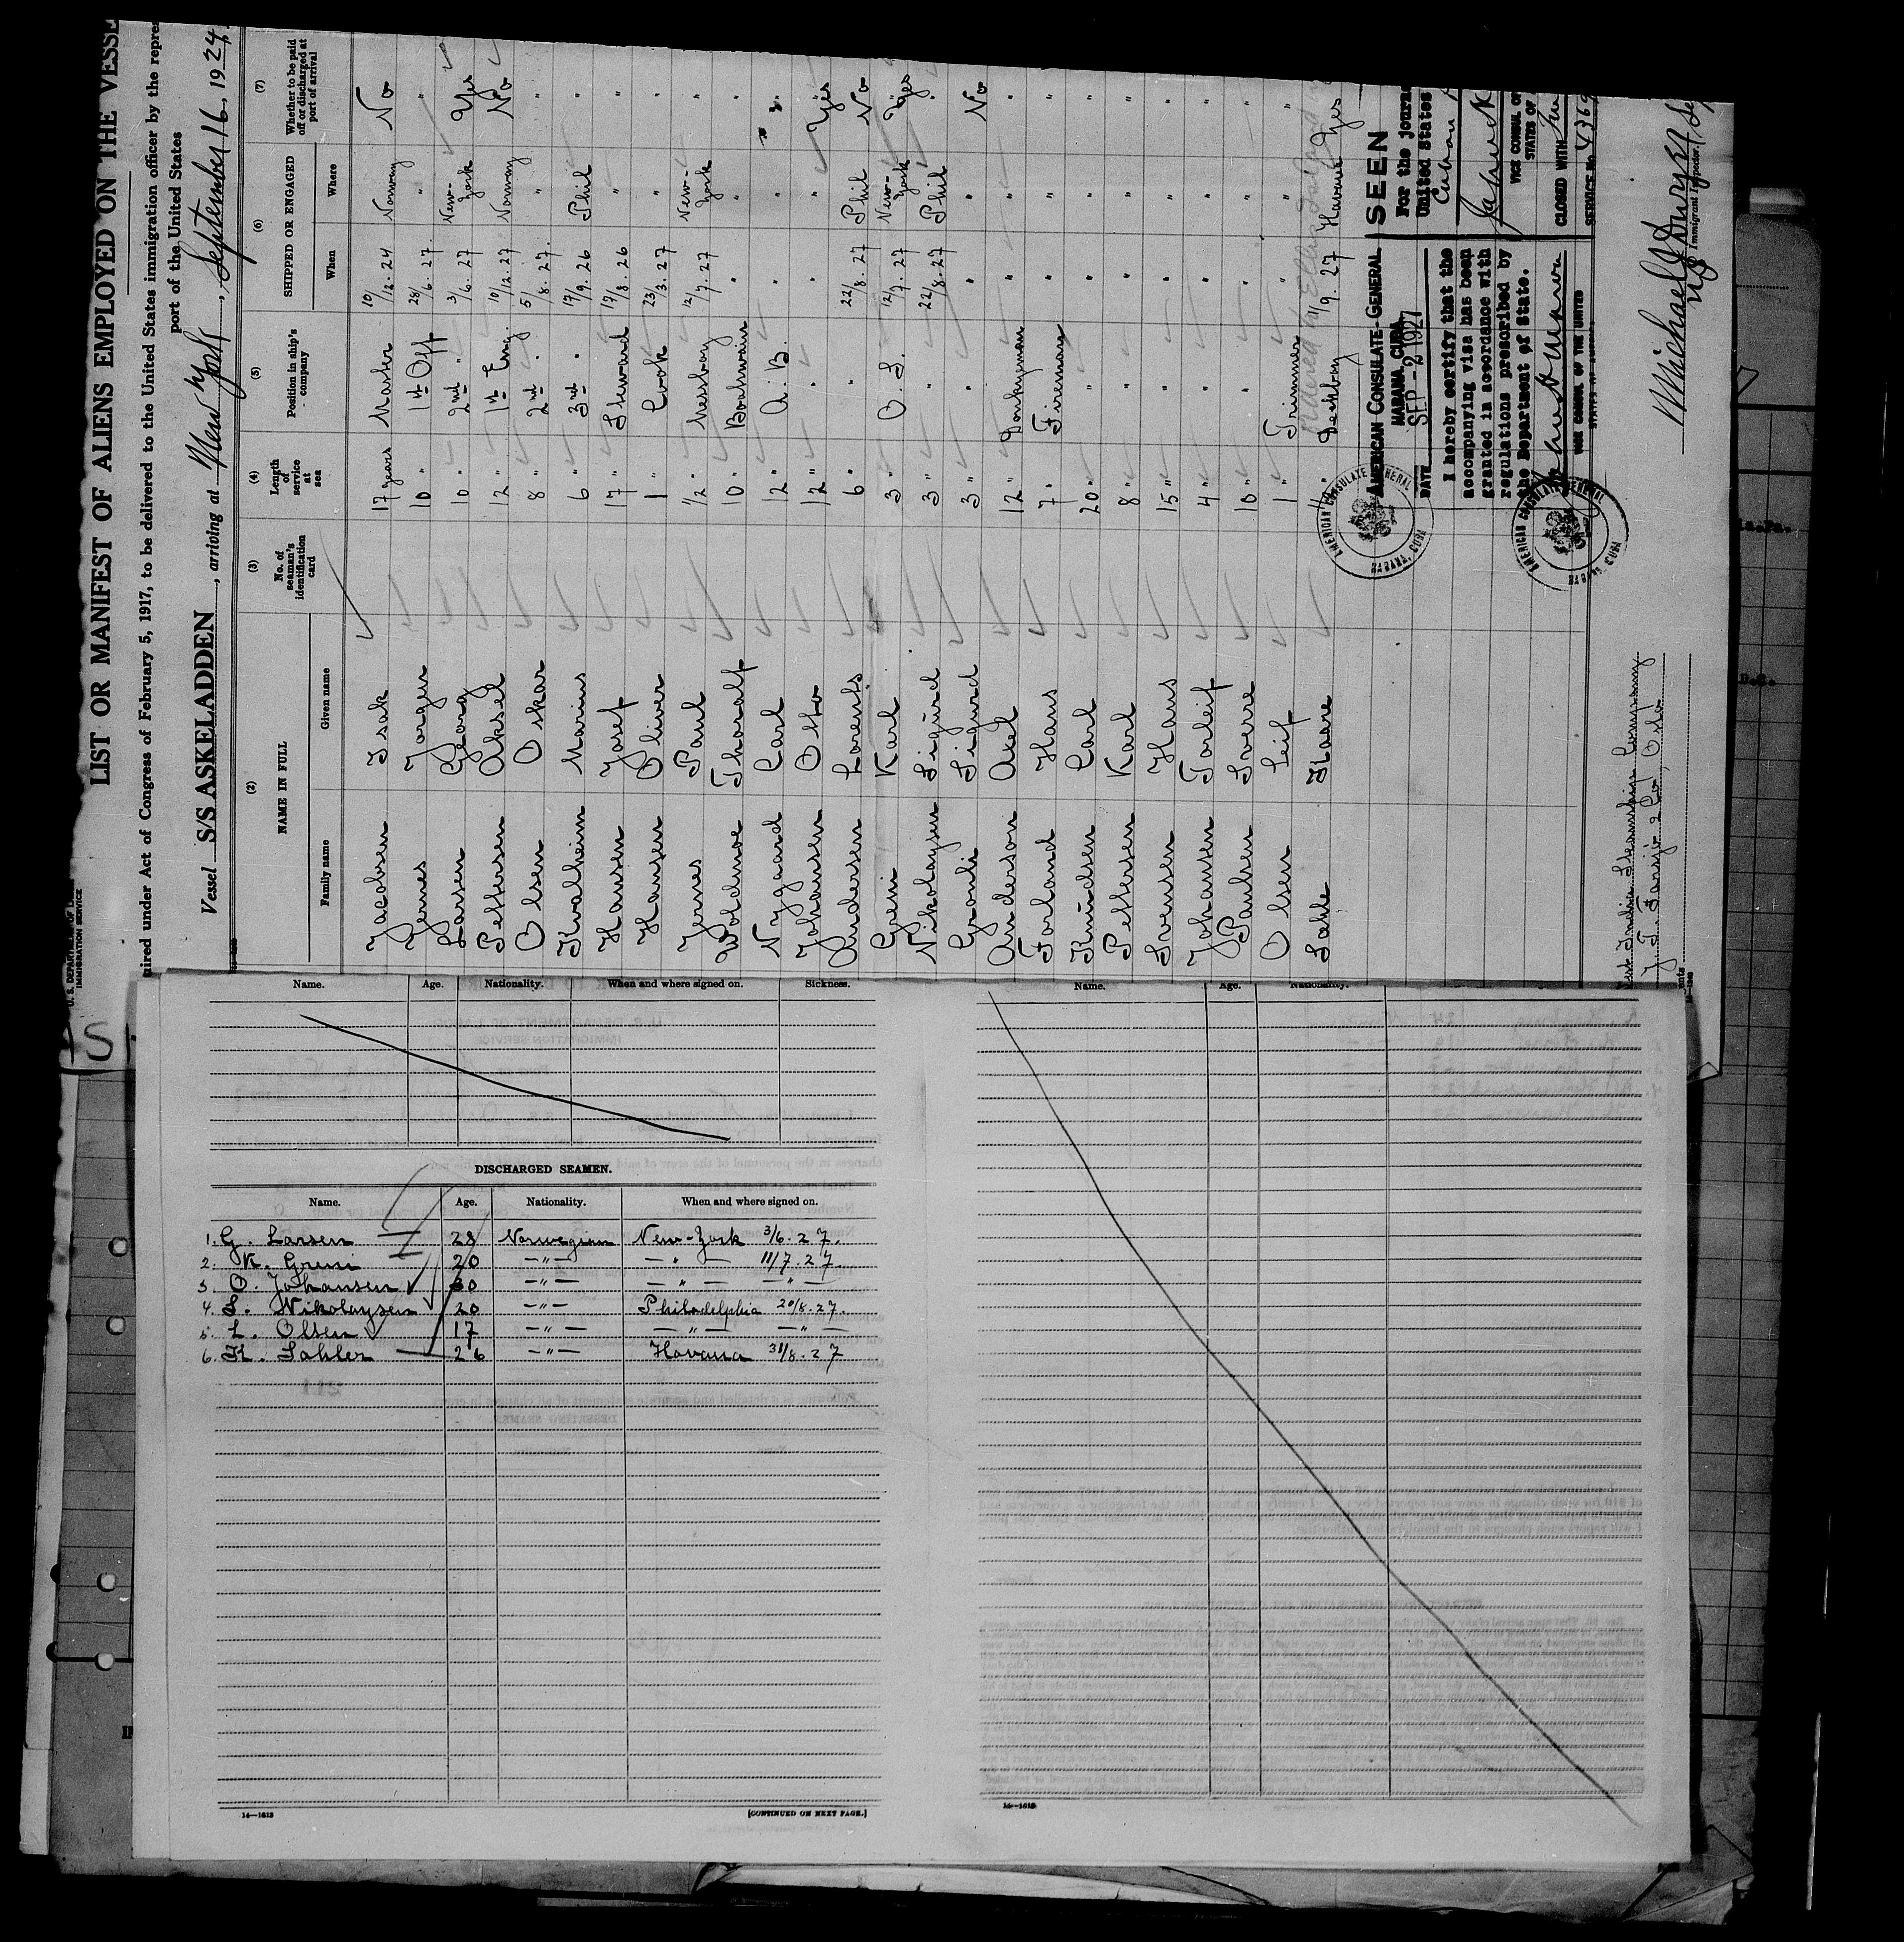 LIST OR MANIFEST OF ALIENS EMPLOYED ON THE VESSE
uired under Act of Congress of February 5, 1917, to be delivered to the United States immigration officer by the repre
port of the United States
Vessel S/S ASKELADDEN, arriving at New York, September 16, 19
U. S. DEPARTMENT OF
IMMIGRATION SERVICE
(2) (3) (4) (5) (6) (7)
NAME IN FULL No. of seaman's identification card Length of service at sea Position in ship's company SHIPPED OR ENGAGED Whether to be paid off or discharged at port of arrival
Family name Given name When Where
Jacobsen Isak 17 years Master 10/12.24 Norway No
Jernes Jorger 10 " 1st Off 28/6.27. " "
Larsen Georg 10 " 2nd " 3/6.27 New-York Yes
Pettersen Aksel 12 " 1st Eng. 10/12.27 Norway No
Olsen Oskar 8 " 2nd " 5/8.27. " "
Kvalheim Marius 6 " 3rd " 17/9.26 Phil "
Hansen Josef 17 " Steward 17/8.26 " "
Hansen Oliver 1 " Cook 23/3.27 " "
Jernes Paul 1/2 " Messboy 12/7.27 New-York "
Woldmoe Thoralf 10 " Boatswain " " "
Nygaard Carl 12 " A.B. " " "
Johansen Otto 12 " " " " Yes
Andersen Lorents 6 " " 22/8.27 Phil No
Greni Karl 3 " O.S. 12/7.27 New-York Yes
Nikolaysen Sigurd 3 " " 22/8.27 Phil "
Gronli Sigurd 3 " " " " No
Anderson Axel 12 " Donkeyman " " "
Forland Hans 7 " Fireman " " "
Knudsen Carl 20 " " " " "
Pettersen Karl 8 " " " " "
Svensen Hans 15 " " " " "
Johansen Torleif 4 " " " " "
Paulsen Sverre 10 " " " " "
Olsen Leif 1 " Trimmer " " "
Sahle Kaare " Deckboy /9.27 Havana Yes
AMERICAN CONSULATE-GENERAL
HABANA, CUBA
DATE SEP -2 1927
I hereby certify that the
accompanying visa has been
granted in accordance with
regulations prescribed by
the Department of State.
VICE CONSUL OF THE UNITED
SEEN
For the journ
United States
VICE CONSUL OF
STATES OF
CLOSED WITH
SERVICE No.
AMERICAN CONSULATE GENERAL
HABANA, CUBA
AMERICAN CONSULATE GENERAL
HABANA, CUBA
India Steamship Company
Co, Oslo
Michael Dwyer
Immigrant Inspector.
Name. Age. Nationality. When and where signed on. Sickness.
DISCHARGED SEAMEN.
Name. Age. Nationality. When and where signed on.
1. G. Larsen 28 Norwegian New-York 3/6.27.
2. K. Greni 20 —"— —"— 11/7.27.
3. O. Johansen 30 —"— —"— —"—
4. S. Nikolaysen 20 —"— Philadelphia 20/8.27.
5. L. Olsen 17 —"— —"— —"—
6. K. Sahler 26 —"— Havana 31/8.27
14—1613 [CONTINUED ON NEXT PAGE.]
Name. Age. Nationality.
14—1613